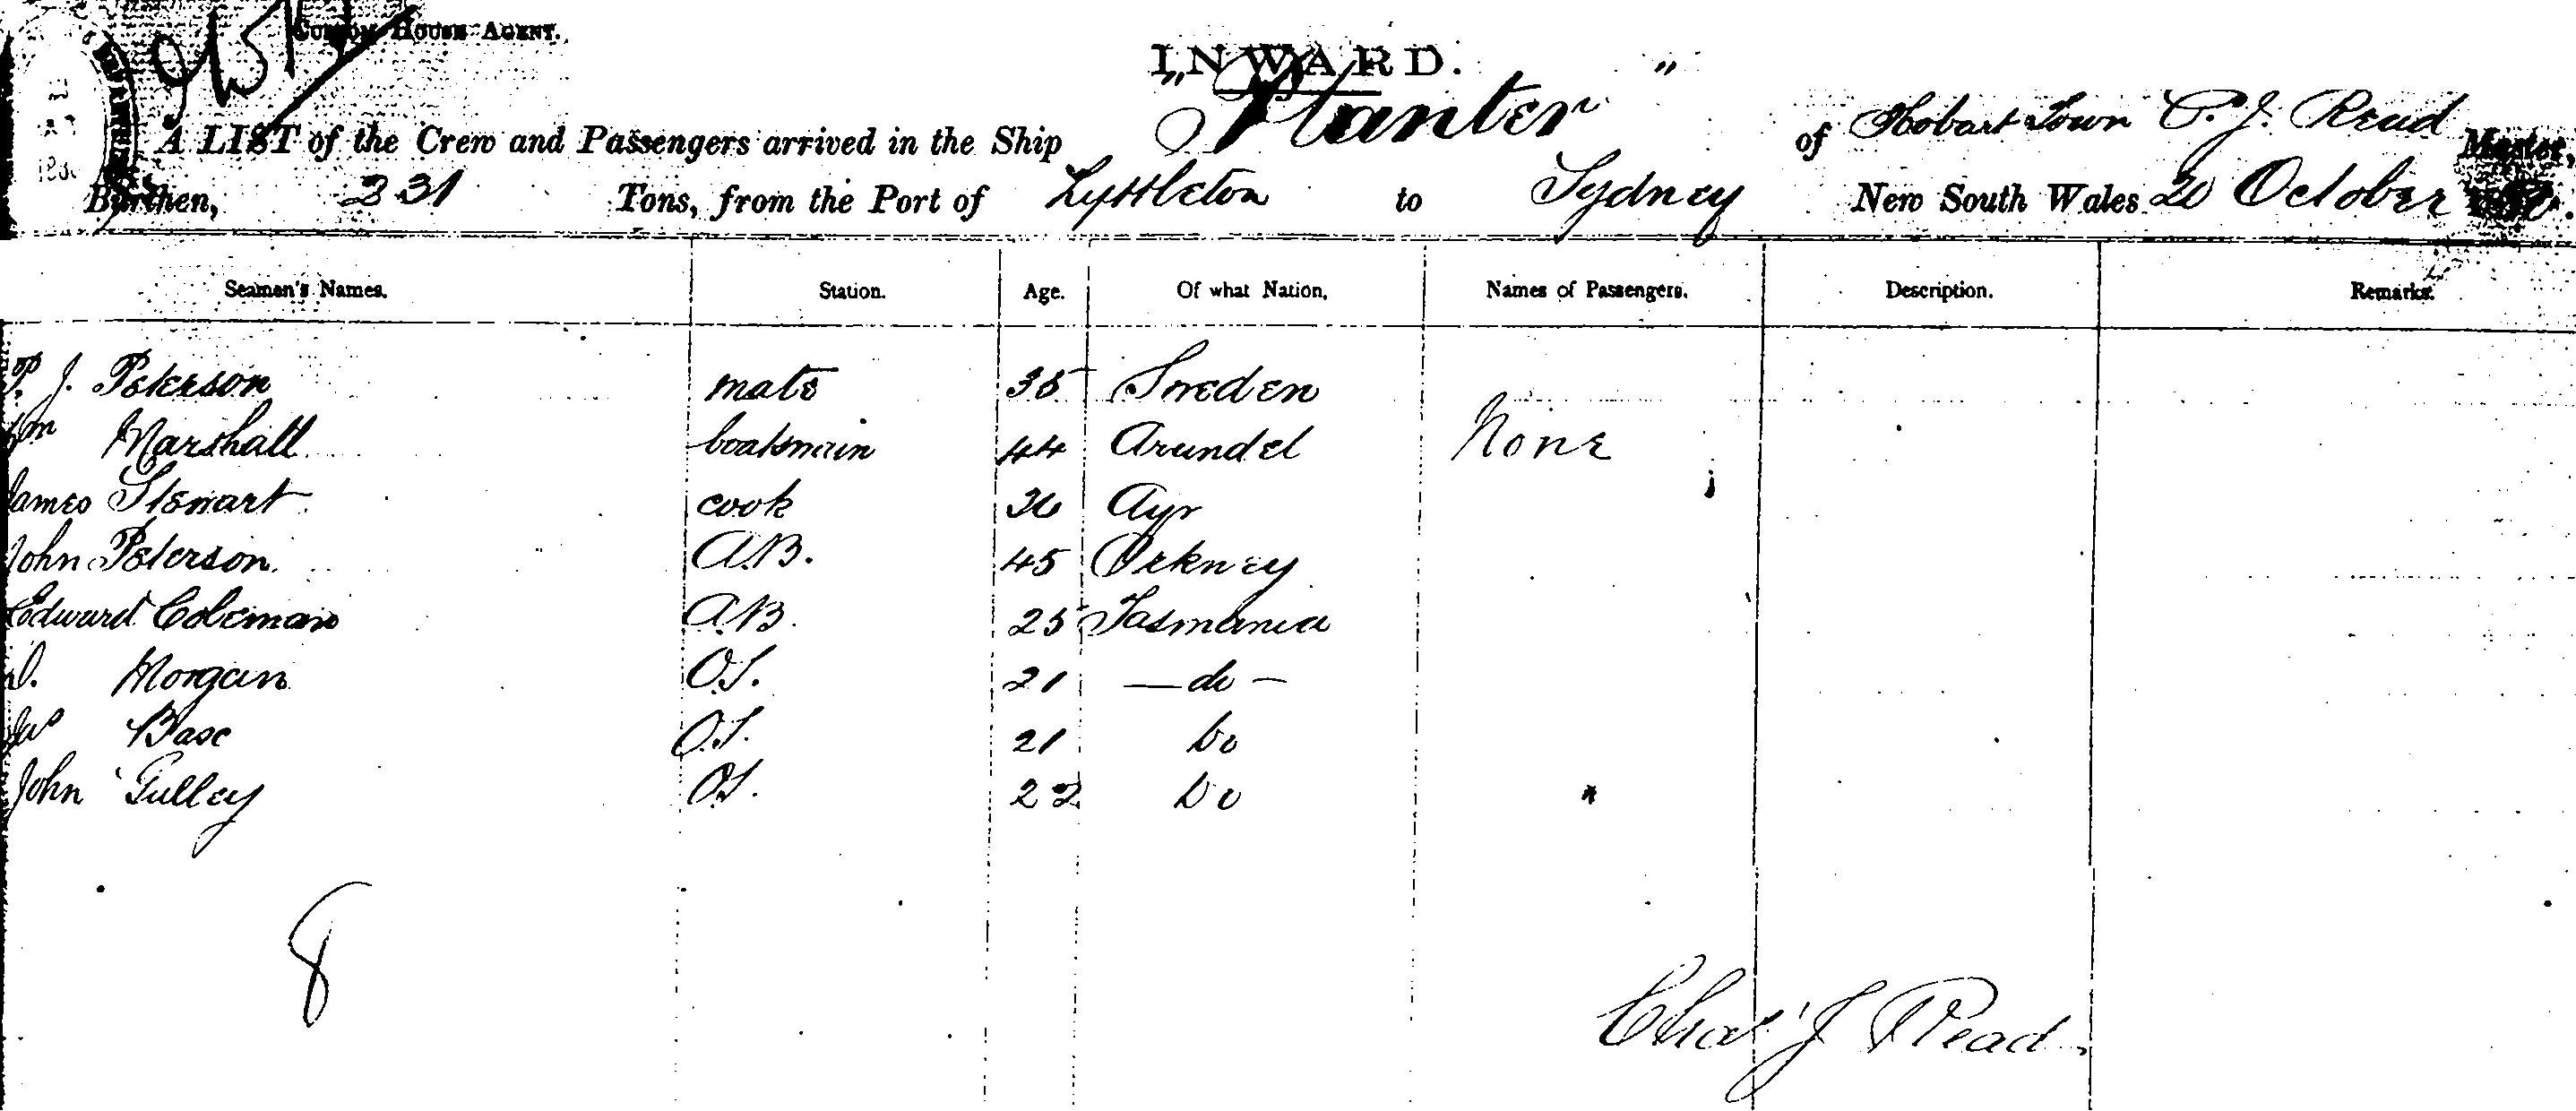 CUSTOM HOUSE AGENT.
INWARD.
A LIST of the Crew and Passengers arrived in the Ship " Planter " of Hobart Town C. J. Read Master,
Burthen, 231 Tons, from the Port of Lyttleton to Sydney New South Wales 20 October
Seamen's Names. Station. Age. Of what Nation. Names of Passengers. Description. Remarks.
J. Peterson mate 35 Sweden
Wm Marshall boatsmain 44 Arundel None
James Stewart cook Ayr
John Peterson A.B. 45 Orkney
Edward Coleman A.B. 25 Tasmania
Morgan O.S. 21 — do —
Base O.S. 21 Do
John Gulley O.S. 22 Do
8
Chas J Read.